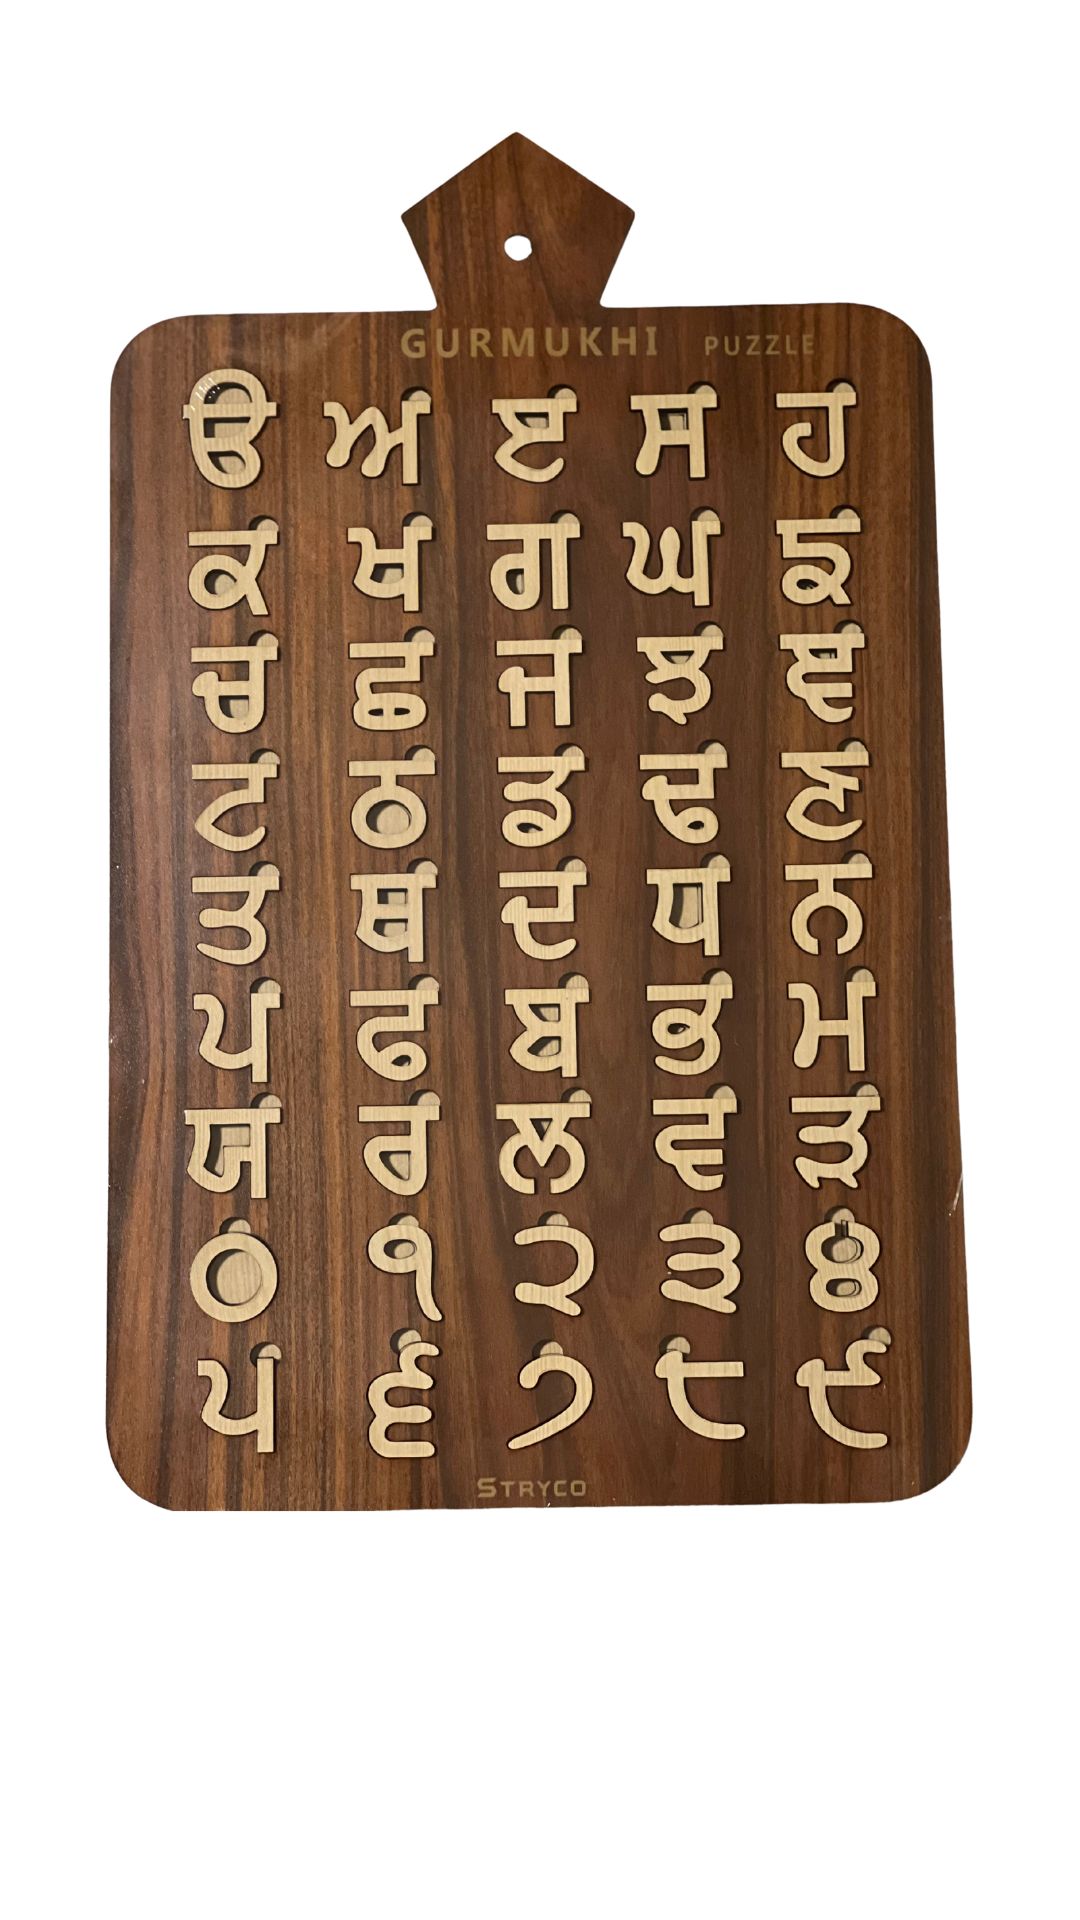 GURMUKHI PUZZLE
ੳ ਅ ੲ ਸ ਹ
ਕ ਖ ਗ ਘ ਙ
ਚ ਛ ਜ ਝ ਞ
ਟ ਠ ਡ ਢ ਣ
ਤ ਥ ਦ ਧ ਨ
ਪ ਫ ਬ ਭ ਮ
ਯ ਰ ਲ ਵ ੜ
੦ ੧ ੨ ੩ ੪
੫ ੬ ੭ ੮ ੯
STRYCO